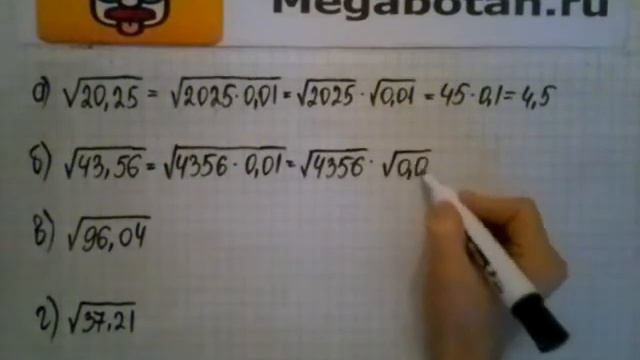 Megabotan.ru
а) √20,25 = √2025·0,01 = √2025 · √0,01 = 45·0,1 = 4,5
б) √43,56 = √4356·0,01 = √4356 · √0,0
в) √96,04
г) √37,21